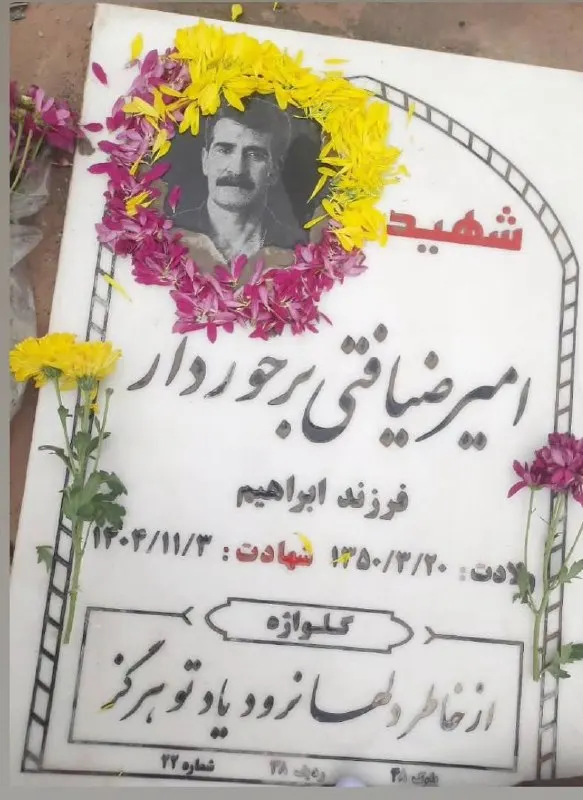 شهید
امیر ضیافتی برخوردار
فرزند ابراهیم
ولادت: ۱۳۵۰/۳/۲۰ شهادت: ۱۴۰۴/۱۱/۳
گلواژه
از خاطر دلها نرود یاد تو هرگز
ردیف ۳۸ شماره ۲۲